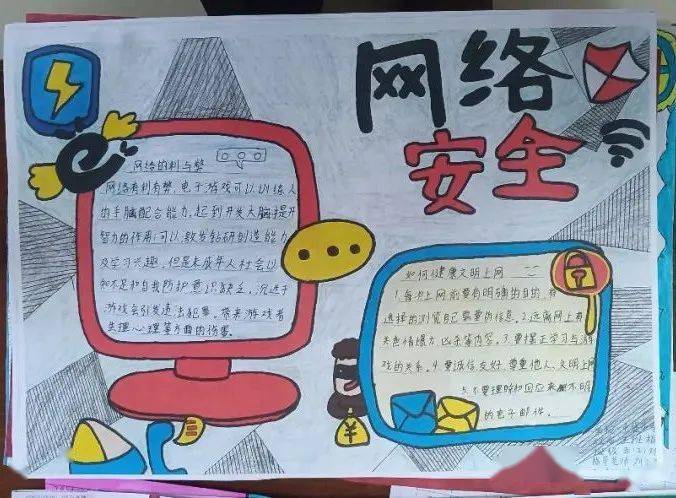 网络
安全
网络的利与弊
网络有利有弊,电子游戏可以训练人
的手脑配合能力,起到开发大脑提升
智力的作用;可以激发钻研创造能力
及学习兴趣,但是未成年人社会认
知不足和自我防护意识缺乏,沉迷于
游戏会引发违法犯罪,带来游戏者
生理心理等方面的伤害。
如何健康文明上网
1.每次上网前要有明确的目的,有
选择的浏览自己需要的信息。2.远离网上有
关色情暴力、凶杀等内容。3.要摆正学习与游
戏的关系。4.要诚信友好,尊重他人,文明上网
5.不要理睬和回应来历不明
的电子邮件。
¥